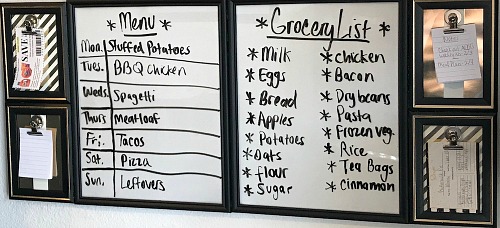 SAVE
* Menu *
Mon. Stuffed Potatoes
Tues. BBQ chicken
Weds. Spagetti
Thurs Meatloaf
Fri. Tacos
Sat. Pizza
Sun. Leftovers
* Grocery List *
* Milk
* Eggs
* Bread
* Apples
* Potatoes
* Oats
* flour
* Sugar
* chicken
* Bacon
* Dry beans
* Pasta
* Frozen veg.
* Rice
* Tea Bags
* Cinnamon